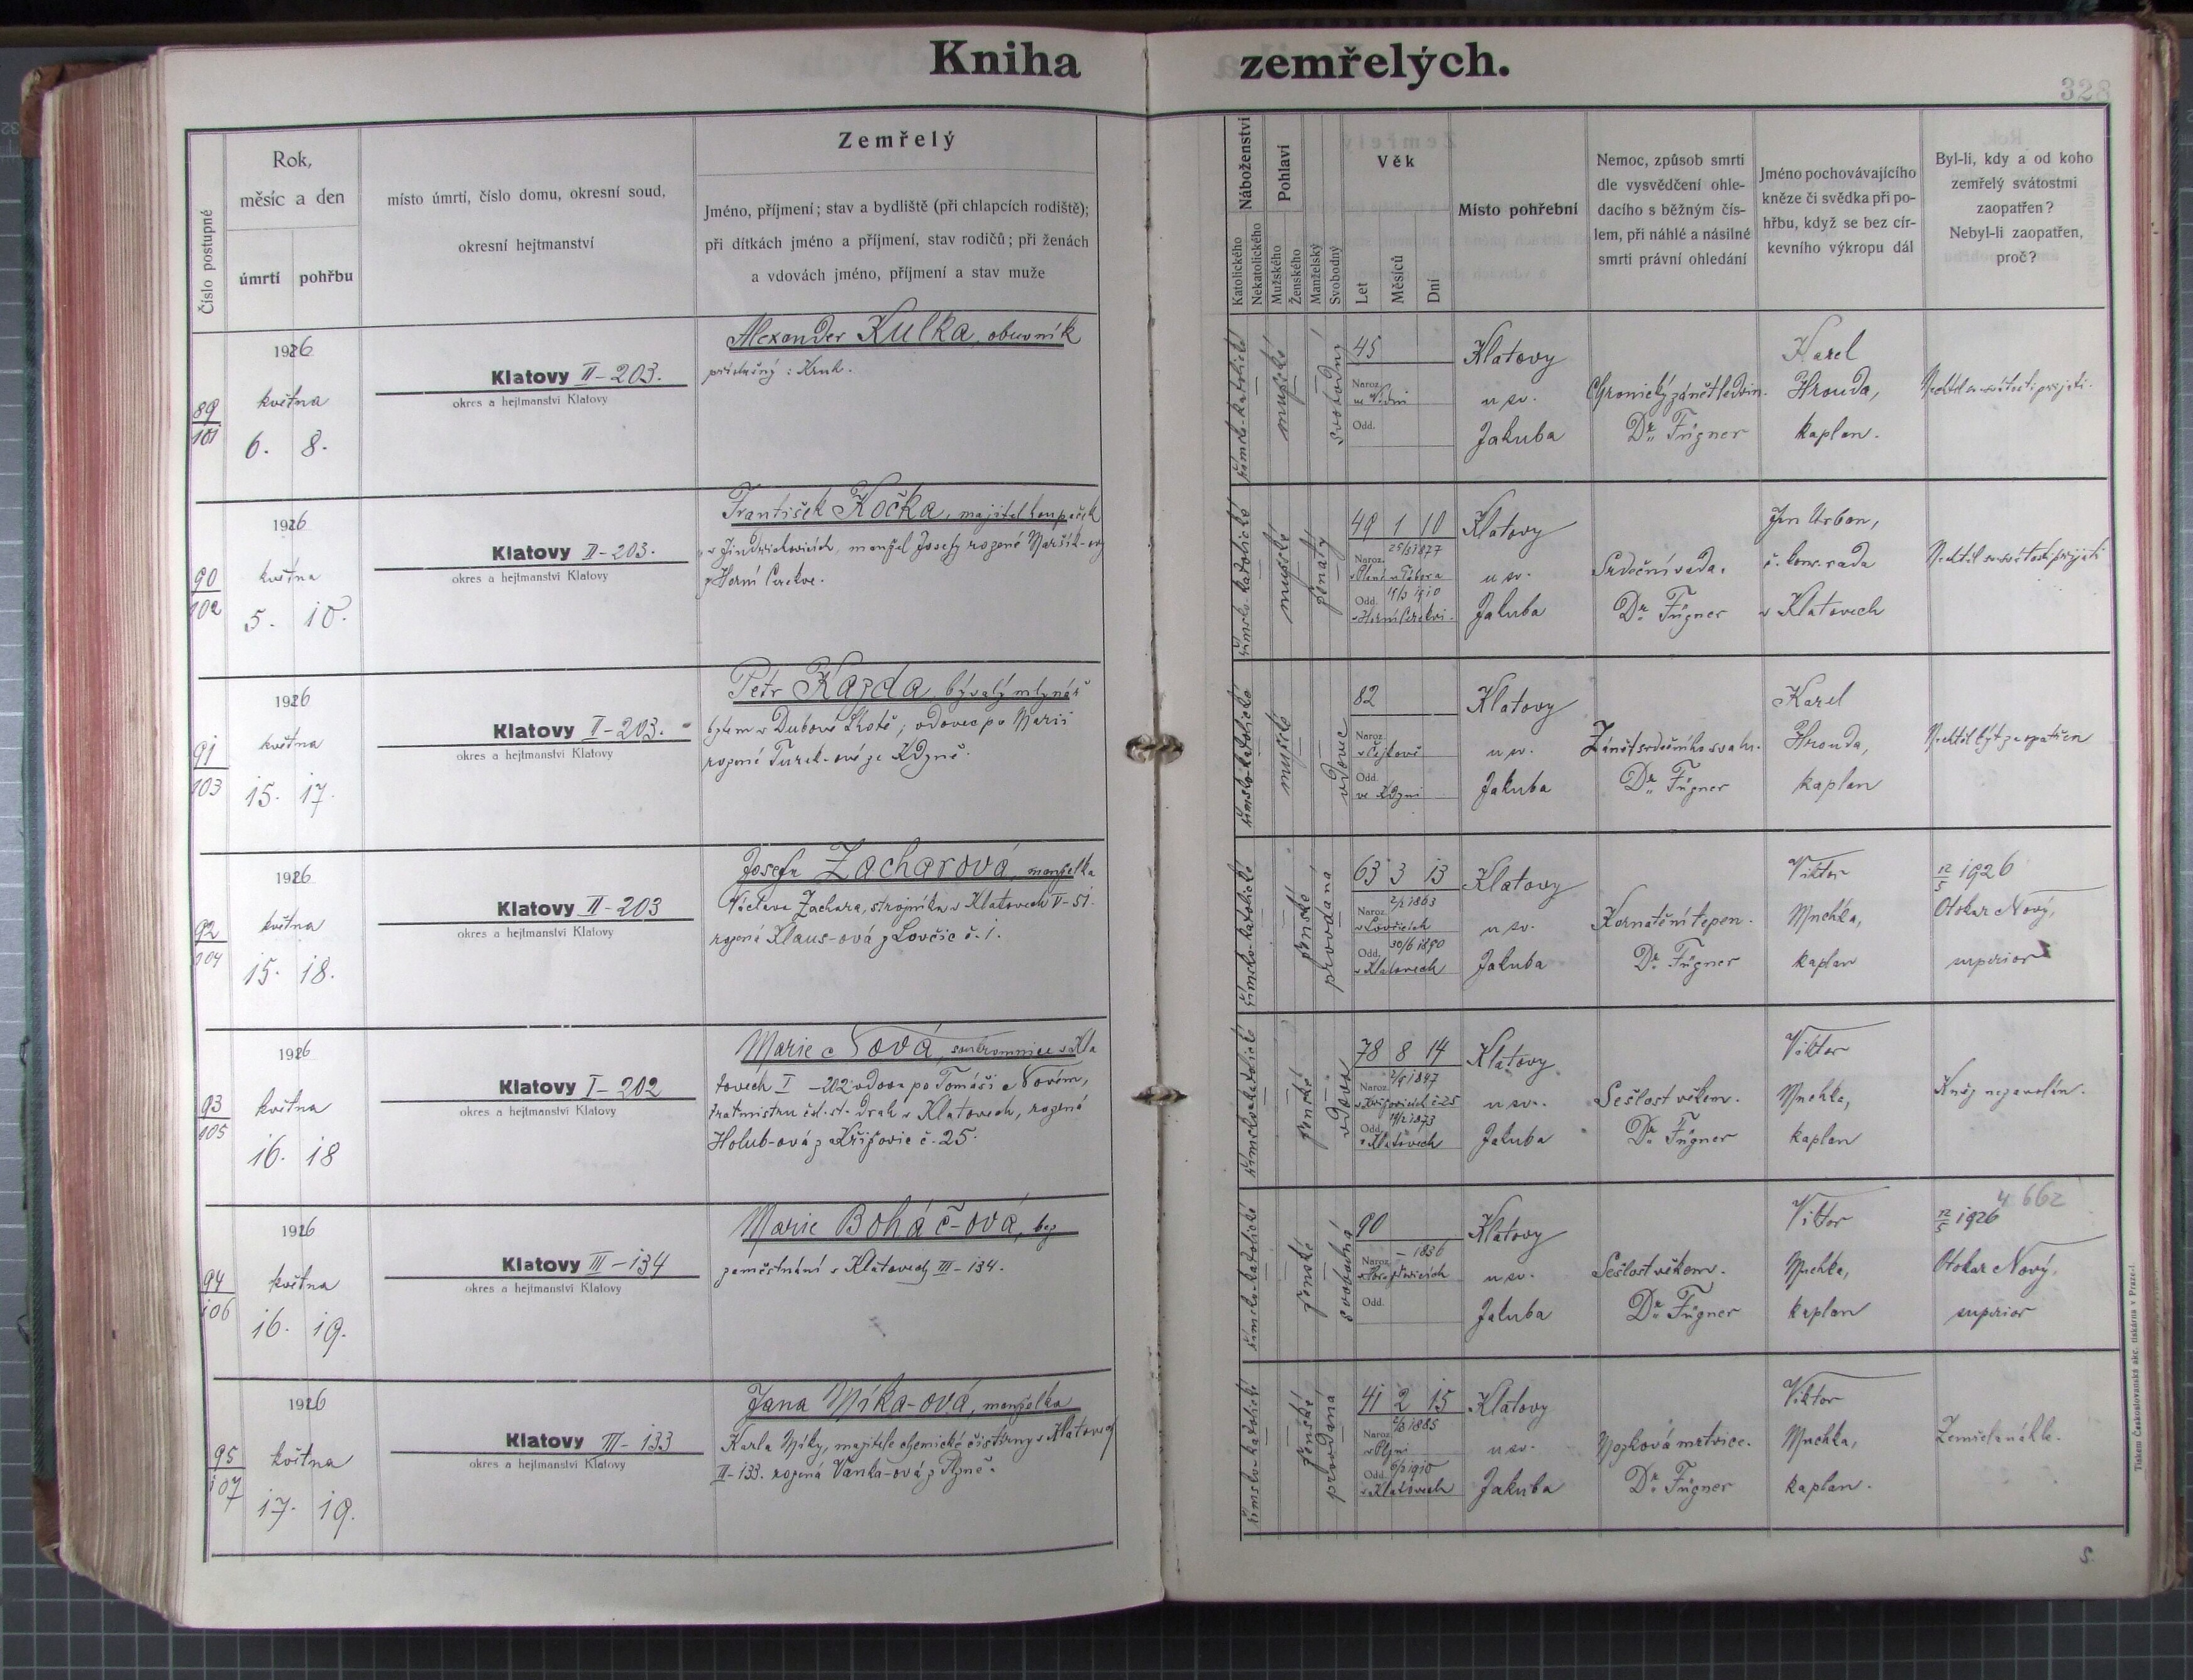 Kniha zemřelých.
328
Číslo postupné
Rok,
měsíc a den
úmrtí
pohřbu
místo úmrtí, číslo domu, okresní soud,
okresní hejtmanství
Zemřelý
Jméno, příjmení; stav a bydliště (při chlapcích rodiště);
při dítkách jméno a příjmení, stav rodičů; při ženách
a vdovách jméno, příjmení a stav muže
Náboženství
Katolického
Nekatolického
Pohlaví
Mužského
Ženského
Manželský
Svobodný
Věk
Let
Měsíců
Dní
Místo pohřební
Nemoc, způsob smrti
dle vysvědčení ohle-
dacího s běžným čís-
lem, při náhlé a násilné
smrti právní ohledání
Jméno pochovávajícího
kněze či svědka při po-
hřbu, když se bez cír-
kevního výkropu dál
Byl-li, kdy a od koho
zemřelý svátostmi
zaopatřen?
Nebyl-li zaopatřen,
proč?
89
101
1926
května
6. 8.
Klatovy II-203.
okres a hejtmanství Klatovy
Alexander Kulka, obuvník
příslušný: Kruh.
římsko-katolické
mužské
svobodný
45
Naroz.
ve Vídni
Odd.
Klatovy
u sv.
Jakuba
Chronický zánět ledvin.
Dr. Fügner
Karel
Hrouda,
kaplan.
Nechtěl sv. svátosti přijati.
90
102
1926
května
5. 10.
Klatovy II-203.
okres a hejtmanství Klatovy
František Kočka, majitel
v Jindřichovicích, manžel Josefy rozené
z Horní Cerekve.
římsko-katolické
mužské
ženatý
49 1 10
25/3 1877
Naroz.
v Plané u Tábora
Odd. 15/3 1910
v Horní Cerekvi.
Klatovy
u sv.
Jakuba
Srdeční vada.
Dr. Fügner
Jan Urban,
č. kons. rada
v Klatovech
Nechtěl sv. svátosti přijati
91
103
1926
května
15. 17.
Klatovy II-203.
okres a hejtmanství Klatovy
Petr Kazda, bývalý mlynář
bytem v Dubové Lhotě; vdovec po Marii
rozené Turek-ové ze Kdyně.
římsko-katolické
mužské
vdovec
82
Naroz.
Odd.
ve Kdyni
Klatovy
u sv.
Jakuba
Zánět srdečního svalu.
Dr. Fügner
Karel
Hrouda,
kaplan
Nechtěl býti zaopatřen
92
104
1926
května
15. 18.
Klatovy II-203
okres a hejtmanství Klatovy
Josefa Zacharová, manželka
Václava Zachara, strojníka v Klatovech V-51.
rozená Klaus-ová z Lovčic č. 1.
římsko-katolické
ženské
provdaná
63 3 13
2/2 1863
Naroz.
v Lovčicích
30/6 1890
Odd.
v Klatovech
Klatovy
u sv.
Jakuba
Kornatění tepen.
Dr. Fügner
Viktor
Muchka,
kaplan
12/5 1926
Otokar Nový,
superior
93
105
1926
května
16. 18
Klatovy I-202
okres a hejtmanství Klatovy
Marie Nová, soukromnice v Kla
tovech I -202 vdova po Tomáši Novém,
tratmistru čsl. st. drah v Klatovech, rozená
Holub-ová z Křižovic č. 25.
římskokatolické
ženské
vdova
78 8 14
2/9 1847
Naroz.
v Křižovicích č 25
Odd. 1873
v Klatovech
Klatovy
u sv.
Jakuba
Sešlost věkem.
Dr. Fügner
Viktor
Muchka,
kaplan
Kněz nezavolán.
94
106
1926
května
16. 19.
Klatovy III-134
okres a hejtmanství Klatovy
Marie Boháč-ová, bez
zaměstnání v Klatovech III-134.
římsko-katolické
ženské
svobodná
90
- 1836
Naroz.
Odd.
Klatovy
u sv.
Jakuba
Sešlost věkem.
Dr. Fügner
Viktor
Muchka,
kaplan
4 662
12/5 1926
Otokar Nový,
superior
95
107
1926
května
17. 19.
Klatovy III-133
okres a hejtmanství Klatovy
Jana Míka-ová, manželka
Karla Míky, majitele chemické čistírny v Klatovech
III-133. rozená Vaňka-ová z Plzně.
římsko-katolické
ženské
provdaná
41 2 15
2/3 1885
Naroz.
v Plzni
Odd. 1910
v Klatovech
Klatovy
u sv.
Jakuba
Mozková mrtvice.
Dr. Fügner
Viktor
Muchka,
kaplan.
Zemřela náhle.
Tiskem Českoslovanské akc. tiskárna v Praze-I.